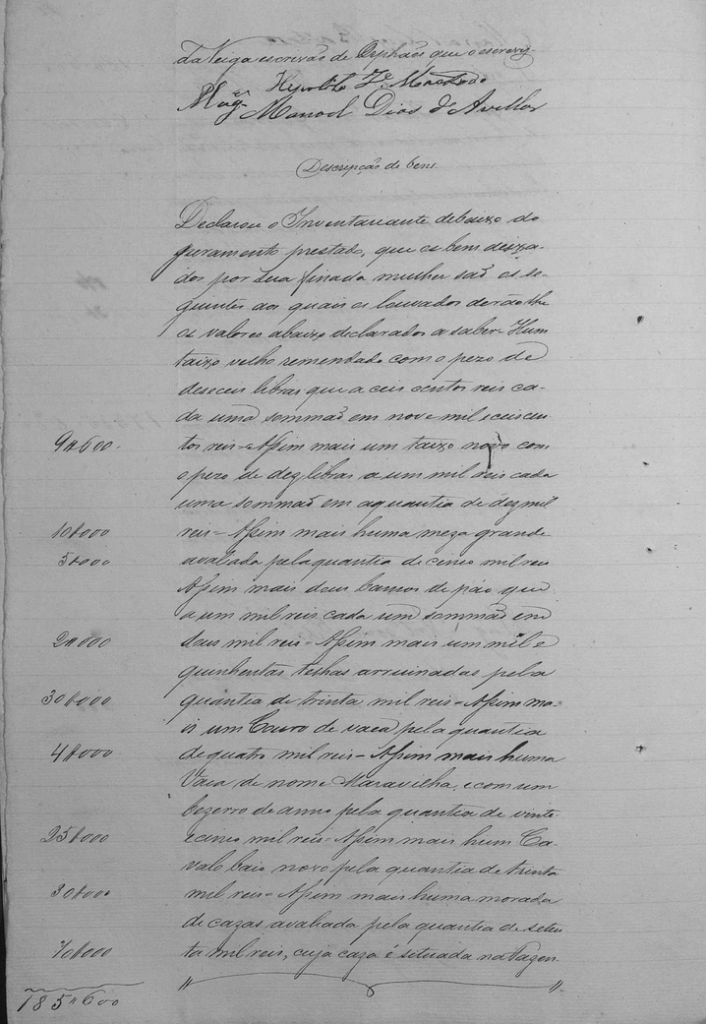 da Veiga escrivão de Orphãos que o escrevy.
Hypolito Je Machado
Manoel Dias d'Avellar
Descripção de bens
Declarou o Inventariante debaixo do
juramento prestado, que os bens deixa-
dos por sua finada mulher saõ os se-
guintes aos quais os louvados derão lhe
os valores abaixo declarados a saber Hum
taixo velho remendado com o pezo de
deseceis libras que a ceis centos reis ca-
da uma sommaõ em nove mil e ceiscen
9#600. tos reis - Assim mais um taixo novo com
o pezo de dez libras a um mil reis cada
uma sommaõ em a quantia de dez mil
10#000 reis - Assim mais huma meza grande
5#000 avaliada pela quantia de cinco mil reis
Assim mais dous bancos de páo que
a um mil reis cada um sommaõ em
2#000 dous mil reis - Assim mais um mil e
quinhentas telhas arruinadas pela
30#000 quantia de trinta mil reis - Assim ma-
is um Couro de vaca pela quantia
4#000 de quatro mil reis - Assim mais huma
Vaca de nome Maravilha, e com um
bezerro de anno pela quantia de vinte
25#000 e cinco mil reis - Assim mais hum Ca-
valo baio novo pela quantia de trinta
30#000 mil reis - Assim mais huma morada
de cazas avaliada pela quantia de seten
70#000 ta mil reis, cuja caza é situada na Fazen
185#600